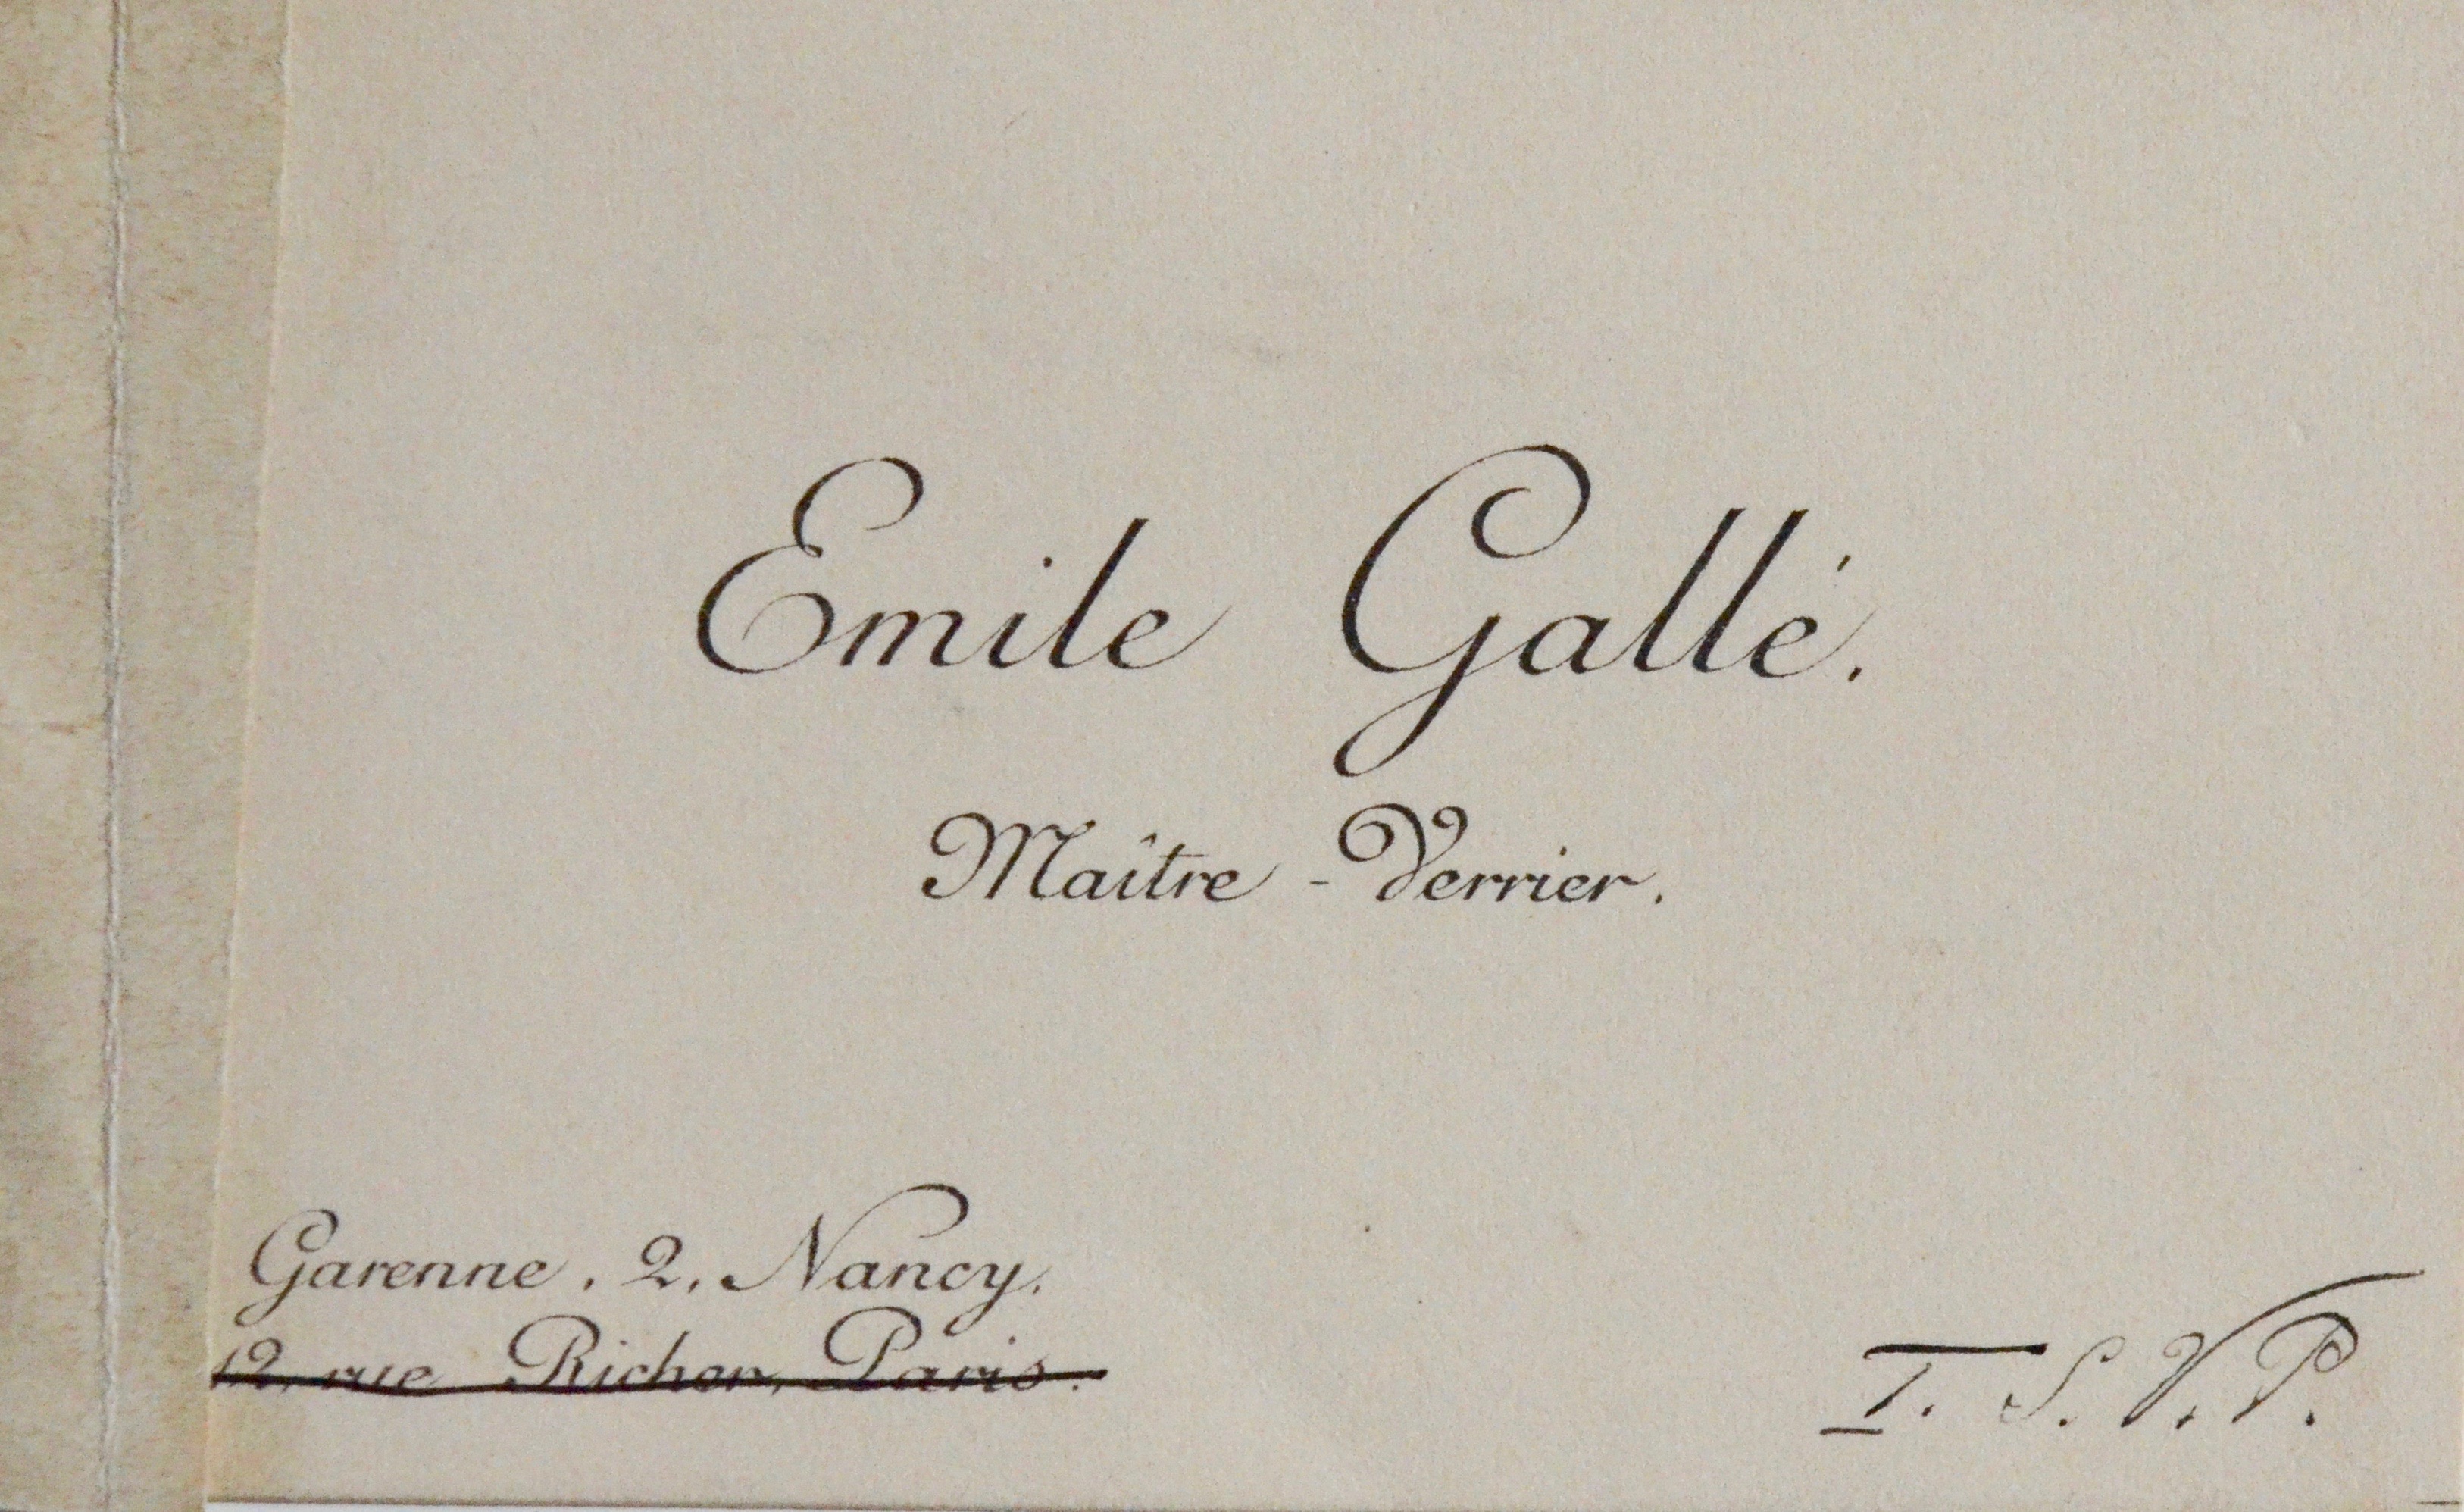 Emile Gallé.
Maître-Verrier.
Garenne, 2, Nancy.
12, rue Richer, Paris.
T. S. V. P.